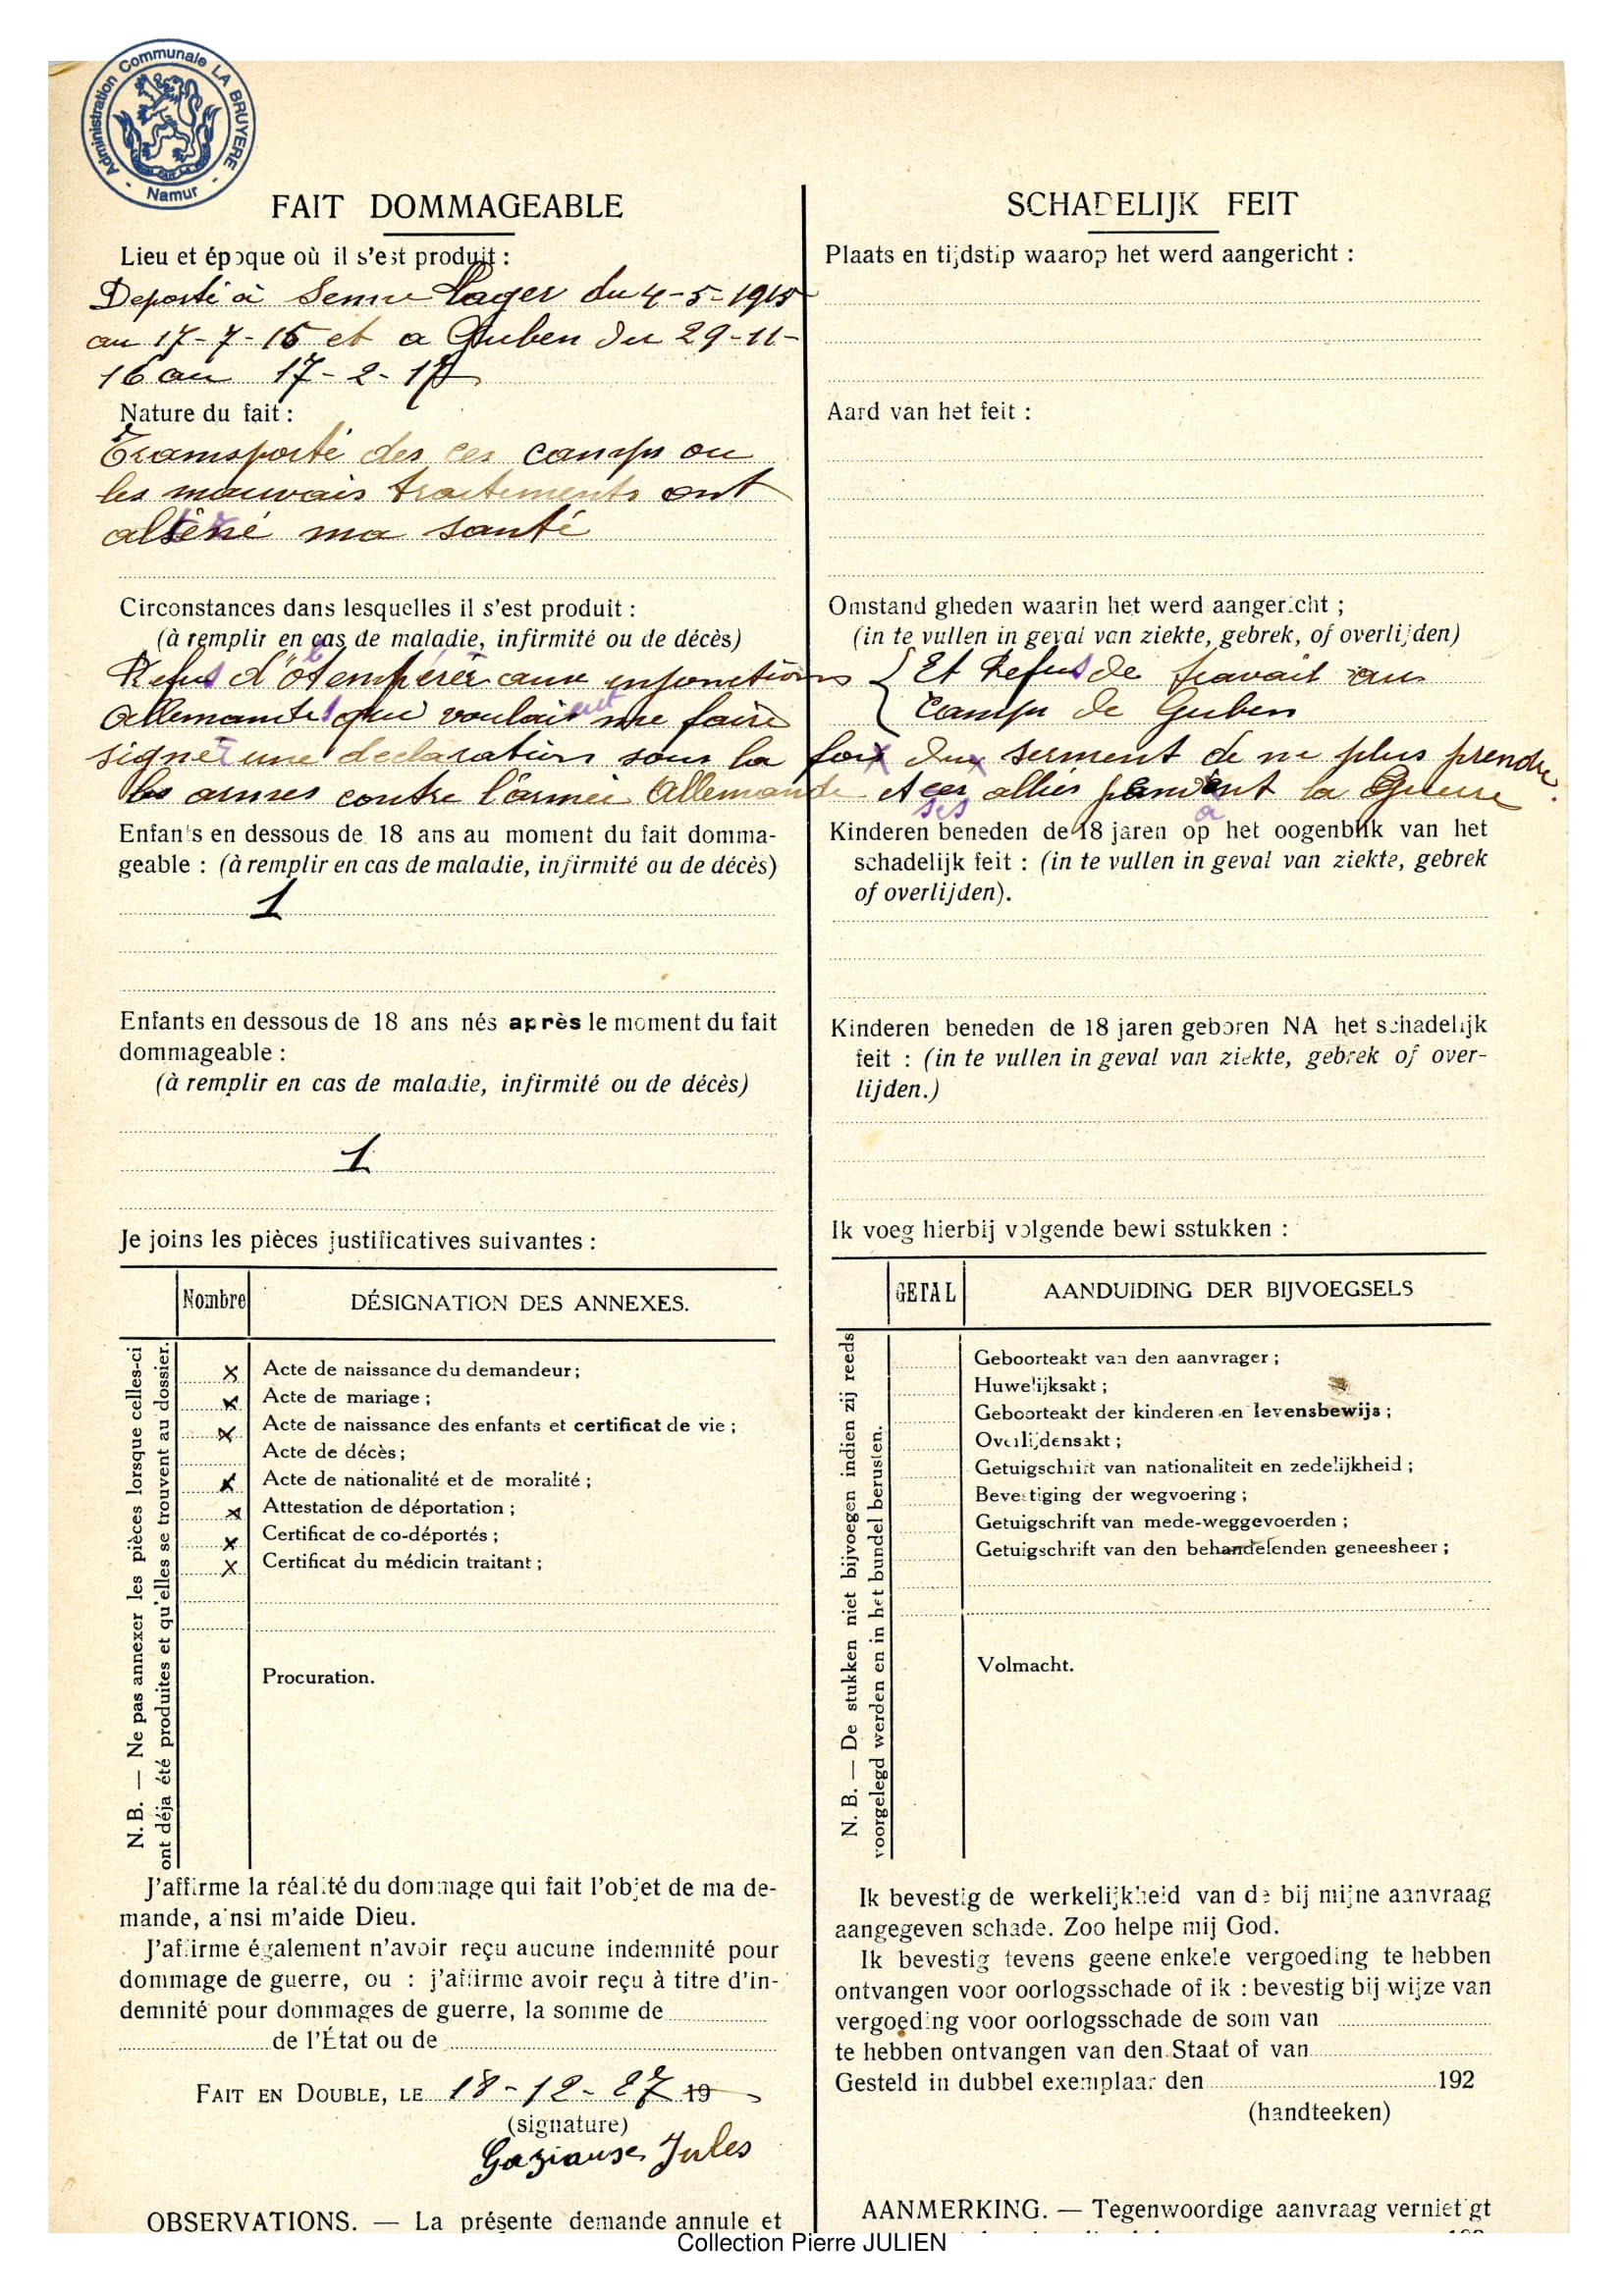 Administration Communale LA BRUYERE
- Namur -
FAIT DOMMAGEABLE
Lieu et époque où il s'est produit :
Deporté à Senne Lager du 4-5-1915
au 17-7-15 et a Guben du 29-11-
16 au 17-2-17
Nature du fait :
Transporté des ces camps ou
les mauvais traitements ont
altéré ma santé
Circonstances dans lesquelles il s'est produit :
(à remplir en cas de maladie, infirmité ou de décès)
Refus d'otempérer aux injonctions
allemandes que voulaient me faire
signer une declaration sous la foix dux serment de ne plus prendre
les armes contre l'armée Allemande et ces alliés pendant la Guerre
ses
a
Enfants en dessous de 18 ans au moment du fait domma-
geable : (à remplir en cas de maladie, infirmité ou de décès)
1
Enfants en dessous de 18 ans nés après le moment du fait
dommageable :
(à remplir en cas de maladie, infirmité ou de décès)
1
Je joins les pièces justificatives suivantes :
Nombre
DÉSIGNATION DES ANNEXES.
N. B. — Ne pas annexer les pièces lorsque celles-ci
ont déja été produites et qu'elles se trouvent au dossier.
x Acte de naissance du demandeur ;
x Acte de mariage ;
x Acte de naissance des enfants et certificat de vie ;
Acte de décès ;
x Acte de nationalité et de moralité ;
x Attestation de déportation ;
x Certificat de co-déportés ;
x Certificat du médicin traitant ;
Procuration.
J'affirme la réalité du dommage qui fait l'objet de ma de-
mande, ainsi m'aide Dieu.
J'affirme également n'avoir reçu aucune indemnité pour
dommage de guerre, ou : j'affirme avoir reçu à titre d'in-
demnité pour dommages de guerre, la somme de
de l'État ou de
FAIT EN DOUBLE, LE 18-12-27 19
(signature)
Gaziause Jules
OBSERVATIONS. — La présente demande annule et
SCHADELIJK FEIT
Plaats en tijdstip waarop het werd aangericht :
Aard van het feit :
Omstandigheden waarin het werd aangericht ;
(in te vullen in geval van ziekte, gebrek, of overlijden)
Et Refus de travail au
camp de Guben
Kinderen beneden de 18 jaren op het oogenblik van het
schadelijk feit : (in te vullen in geval van ziekte, gebrek
of overlijden).
Kinderen beneden de 18 jaren geboren NA het schadelijk
feit : (in te vullen in geval van ziekte, gebrek of over-
lijden.)
Ik voeg hierbij volgende bewijsstukken :
GETAL
AANDUIDING DER BIJVOEGSELS
N. B. — De stukken niet bijvoegen indien zij reeds
voorgelegd werden en in het bundel berusten.
Geboorteakt van den aanvrager ;
Huwelijksakt ;
Geboorteakt der kinderen en levensbewijs ;
Overlijdensakt ;
Getuigschrift van nationaliteit en zedelijkheid ;
Bevestiging der wegvoering ;
Getuigschrift van mede-weggevoerden ;
Getuigschrift van den behandelenden geneesheer ;
Volmacht.
Ik bevestig de werkelijkheid van de bij mijne aanvraag
aangegeven schade. Zoo helpe mij God.
Ik bevestig tevens geene enkele vergoeding te hebben
ontvangen voor oorlogsschade of ik : bevestig bij wijze van
vergoeding voor oorlogsschade de som van
te hebben ontvangen van den Staat of van
Gesteld in dubbel exemplaar den 192
(handteeken)
AANMERKING. — Tegenwoordige aanvraag vernietigt
Collection Pierre JULIEN